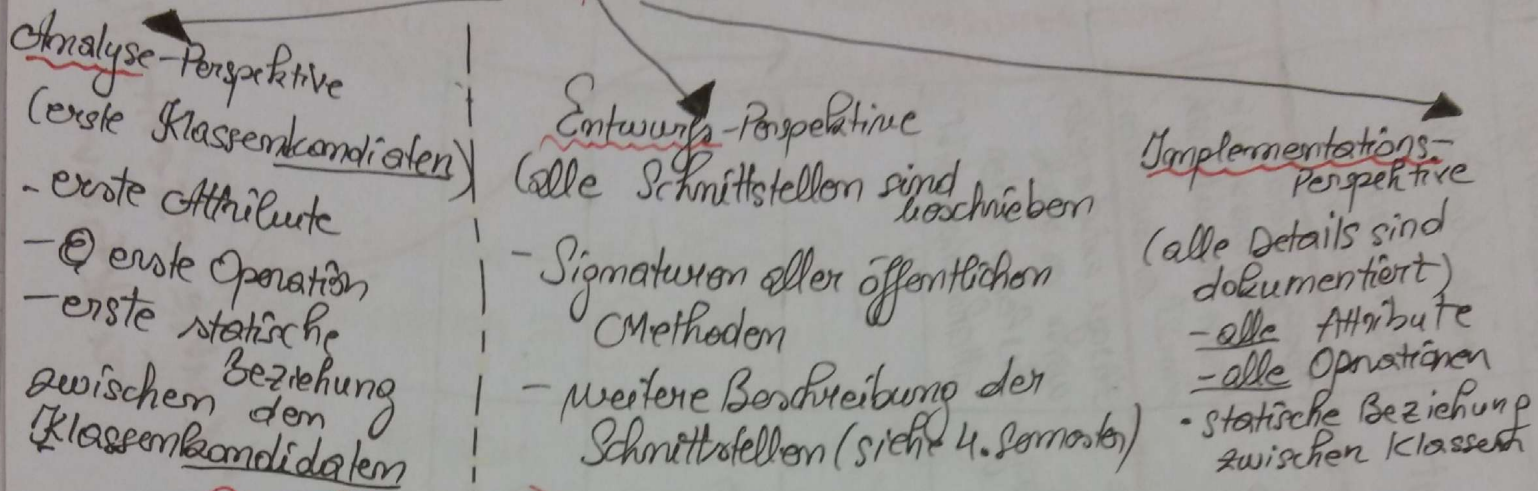 Analyse-Perspektive
(erste Klassenkandidaten)
- erste Attribute
- erste Operation
- erste statische
Beziehung
zwischen den
Klassenkandidaten
Entwurfs-Perspektive
(alle Schnittstellen sind
beschrieben
- Signaturen aller öffentlichen
Methoden
- weitere Beschreibung der
Schnittstellen (siehe 4. Semester)
Implementations-
Perspektive
(alle Details sind
dokumentiert)
- alle Attribute
- alle Operationen
- statische Beziehung
zwischen Klassen